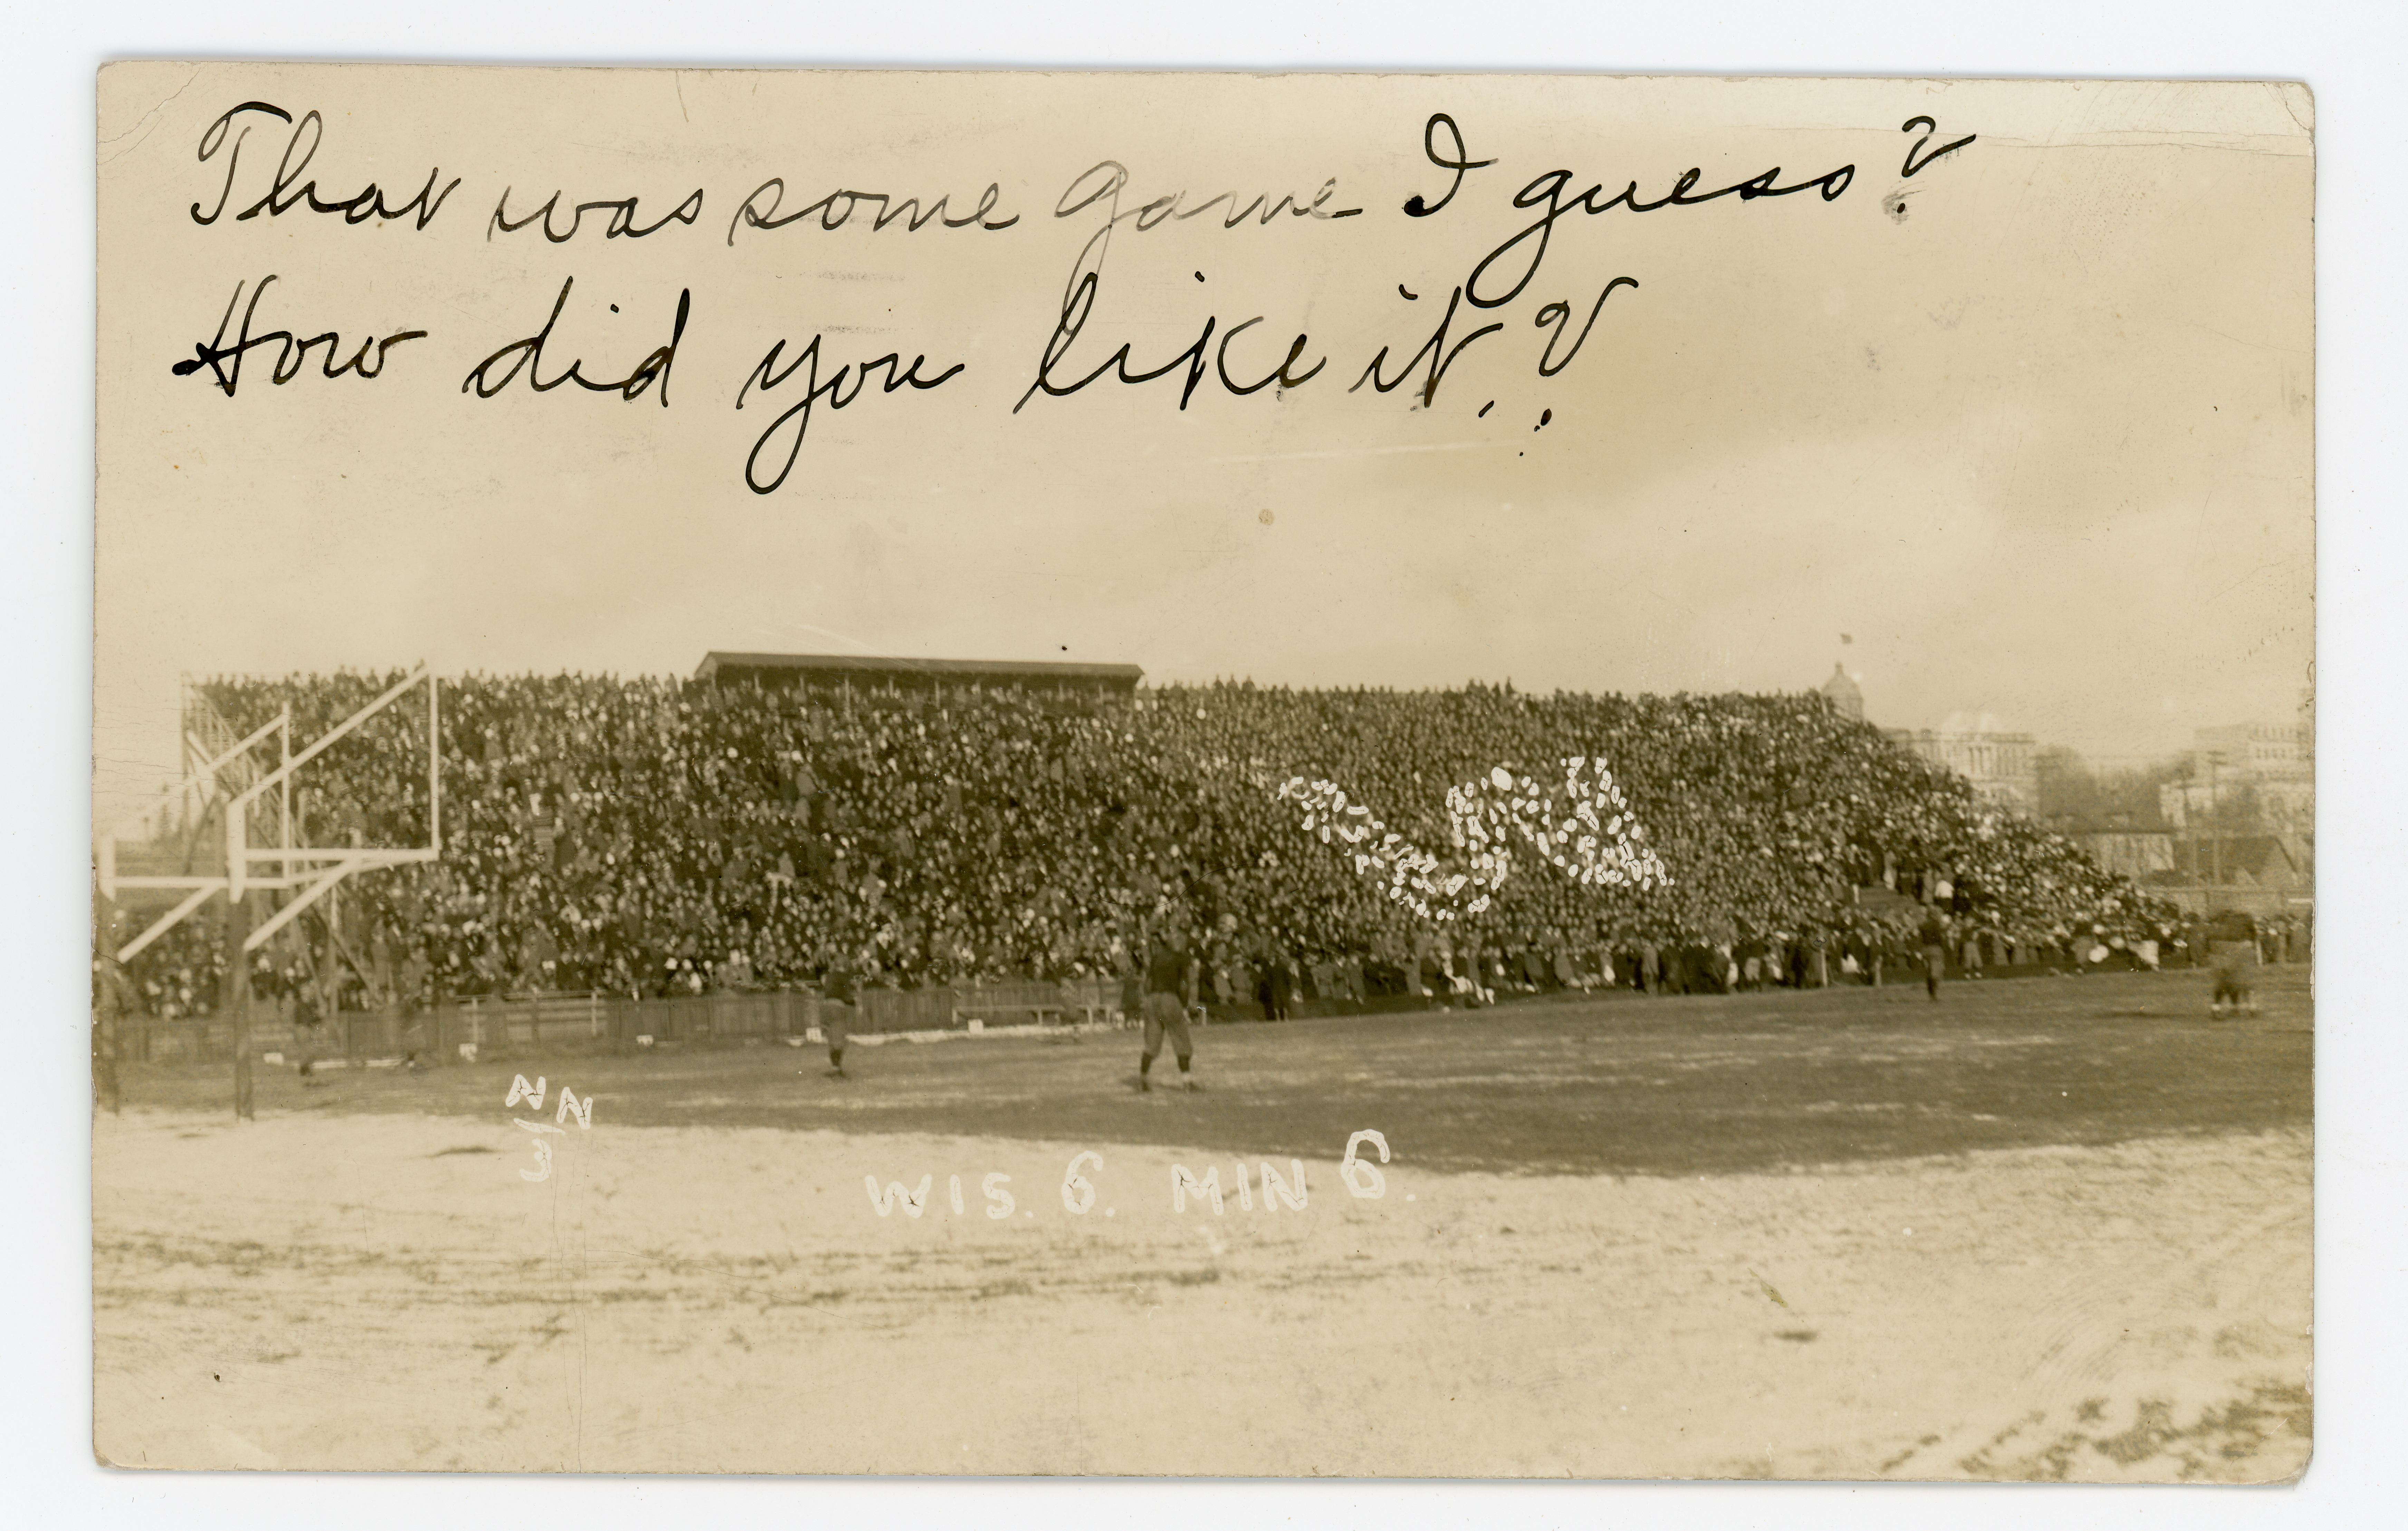 That was some game I guess?
How did you like it.?
NN
3
WIS. 6. MIN 6.